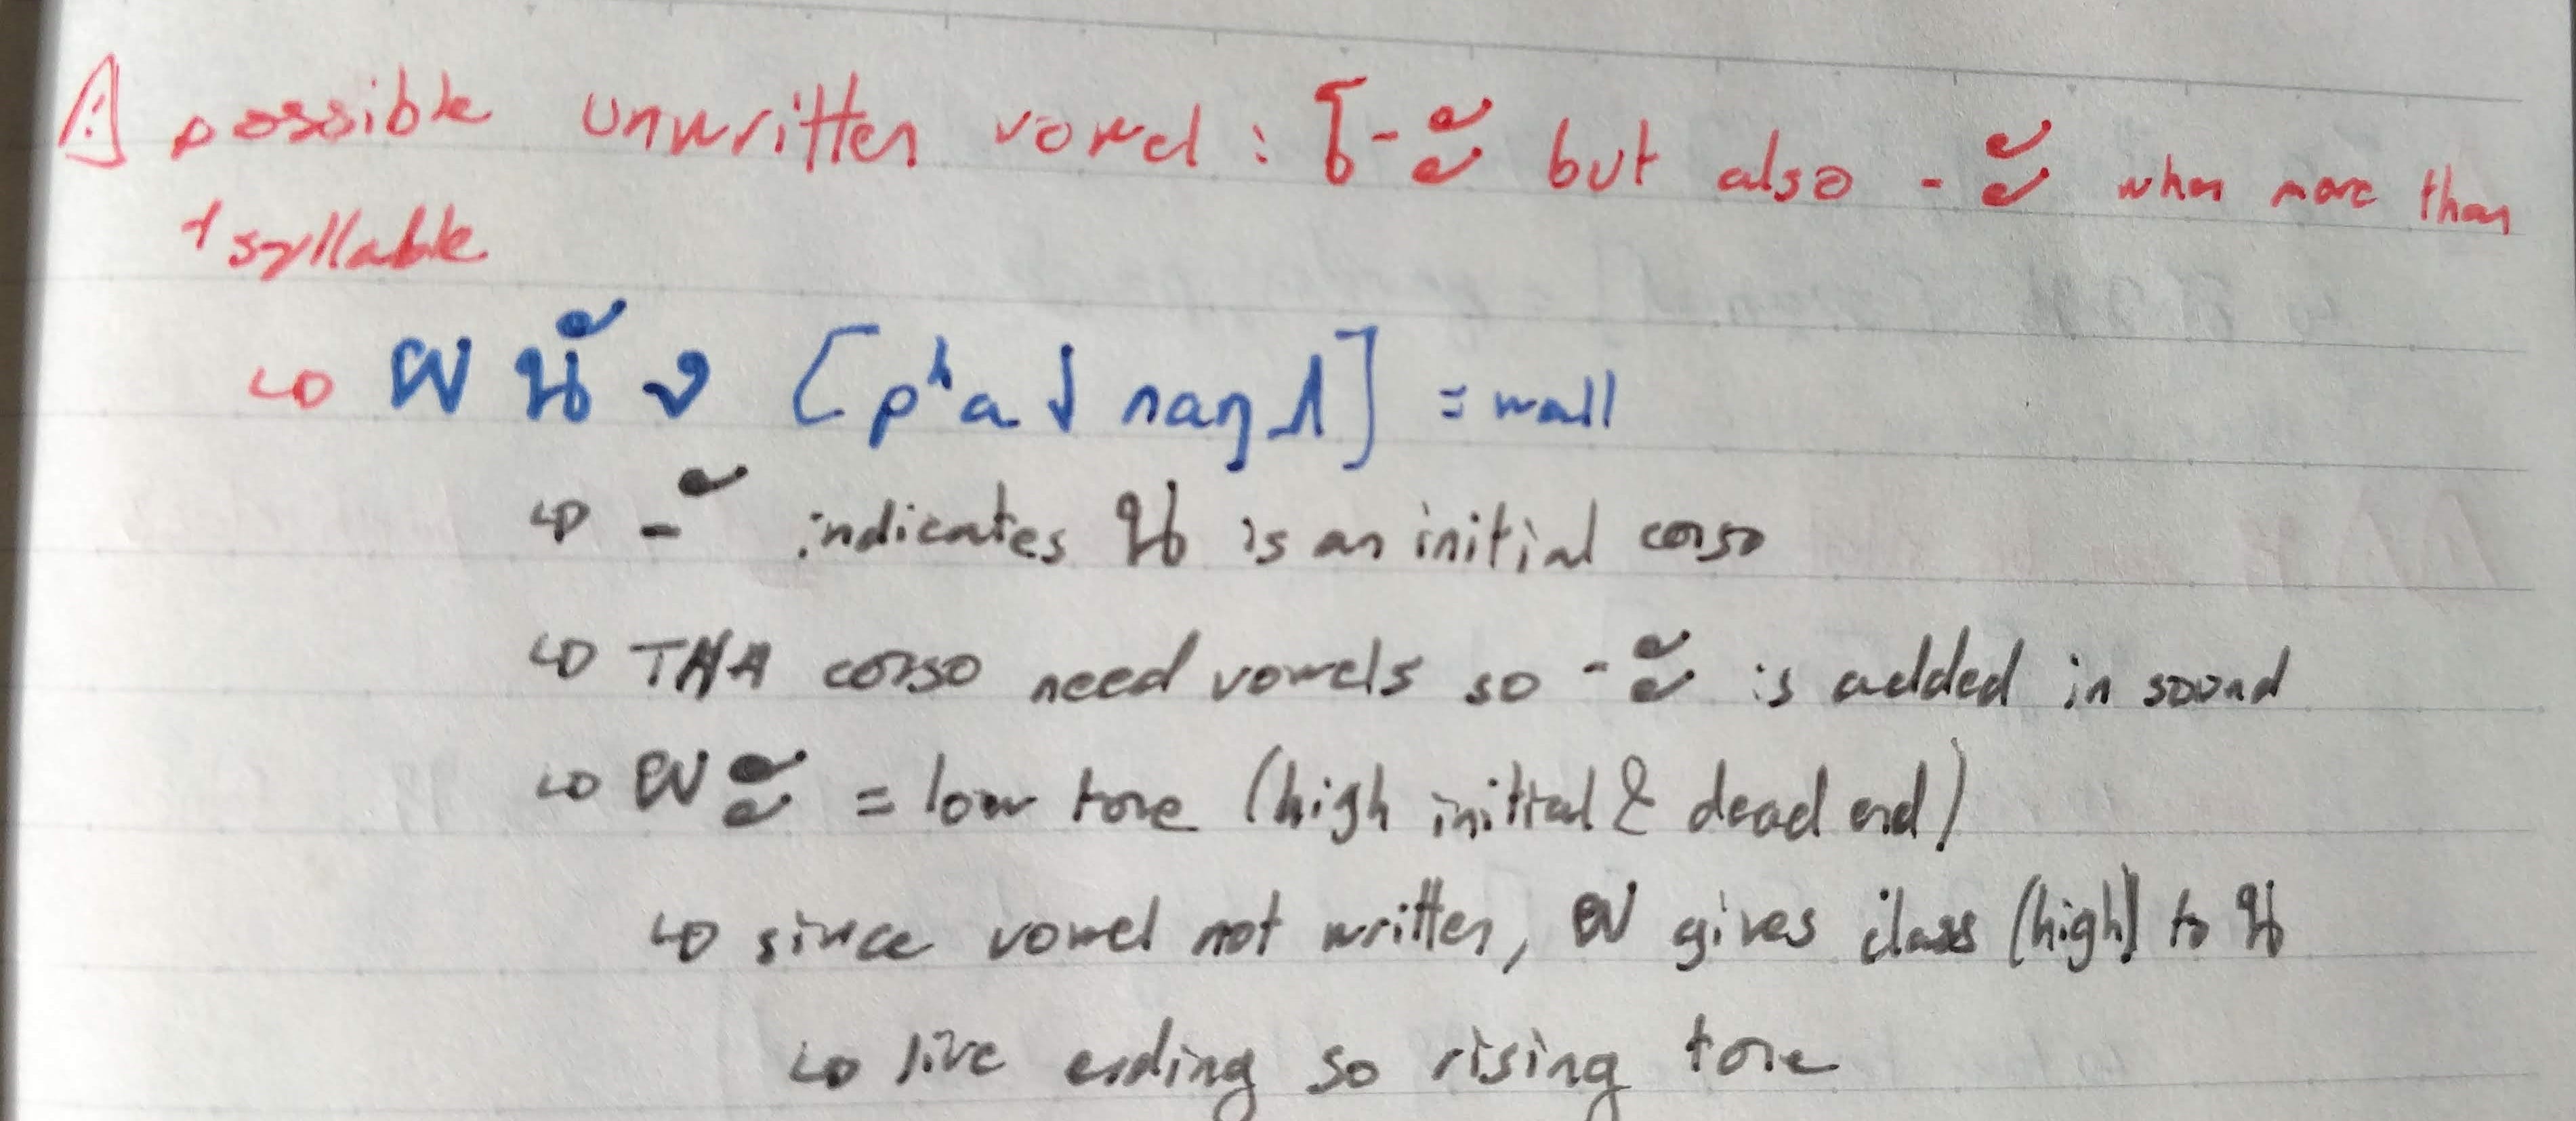 ⚠ possible unwritten vowel : โ-ะ but also -ะ when more than
1 syllable
↳ ผนัง [pʰa↓ naŋ⩘] = wall
↳ -ั indicates น is an initial conso
↳ THA conso need vowels so -ะ is added in sound
↳ ผะ = low tone (high initial & dead end)
↳ since vowel not written, ผ gives class (high) to น
↳ live ending so rising tone